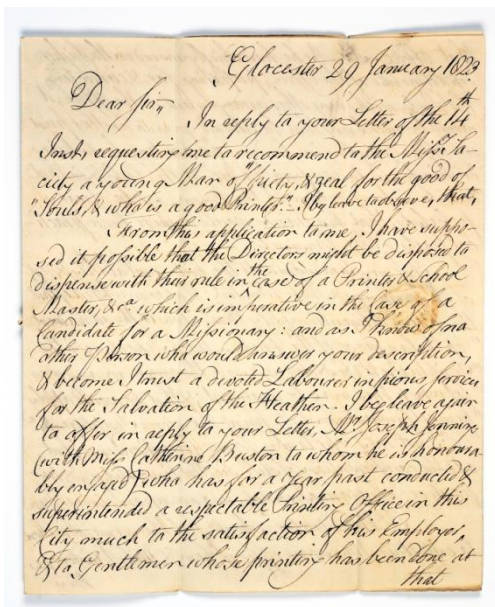 Glocester 29 January 1823
Dear Sir,,
In reply to your Letter of the 14th
Inst, requesting me to recommend to the Missy So-
ciety a young Man of "Piety, & zeal for the good of
"Souls, & who is a good Printer." – I by leave to observe, that,
From this application to me, I have suppo-
sed it possible that the Directors might be disposed to
dispense with their rule in the case of a Printer & School
Master, &ca which is imperative in the Case of a
Candidate for a Missionary: and as I know of no
other Person who would answer your description,
& become I trust a devoted Labourer in pious services
for the Salvation of the Heathen. I beg leave again
to offer in reply to your Letter, Mr Joseph Jennings
(with Miss Catherine Buston to whom he is honoura-
bly engaged) who has for a Year past conducted &
superintended a respectable Printing Office in this
City much to the satisfaction of his Employer,
& to Gentlemen whose printing has been done at
that